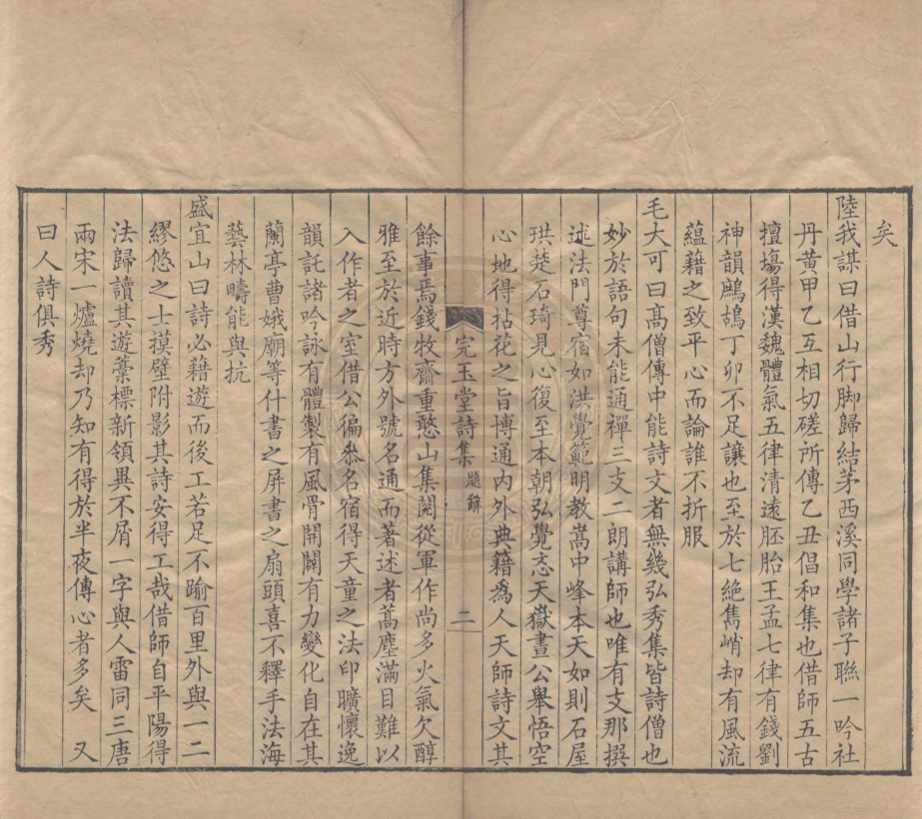 矣
陸我謀曰借山行脚歸結茅西溪同學諸子聯一吟社
丹黃甲乙互相切磋所傳乙丑倡和集也借師五古
擅塲得漢魏體氣五律清遠胚胎王孟七律有錢劉
神韻鷓鴣丁卯不足讓也至於七絶雋峭却有風流
蘊藉之致平心而論誰不折服
毛大可曰髙僧傳中能詩文者無幾弘秀集皆詩僧也
妙於語句未能通禪三支二朗講師也唯有支那撰
述法門尊宿如洪覺範明教嵩中峰本天如則石屋
珙楚石琦見心復至本朝弘覺忞天嶽晝公舉悟空
心地得拈花之旨博通内外典籍爲人天師詩文其
完玉堂詩集 題辭 二
餘事焉錢牧齋重憨山集閱從軍作尚多火氣欠醇
雅至於近時方外號名通而著述者蒿塵滿目難以
入作者之室借公徧叅名宿得天童之法印曠懷逸
韻託諸吟詠有體製有風骨開闔有力變化自在其
蘭亭曹娥廟等什書之屏書之扇頭喜不釋手法海
藝林疇能與抗
盛宜山曰詩必藉遊而後工若足不踰百里外與一二
繆悠之士摸壁附影其詩安得工哉借師自平陽得
法歸讀其遊藁標新領異不屑一字與人雷同三唐
兩宋一爐燒却乃知有得於半夜傳心者多矣 又
曰人詩俱秀